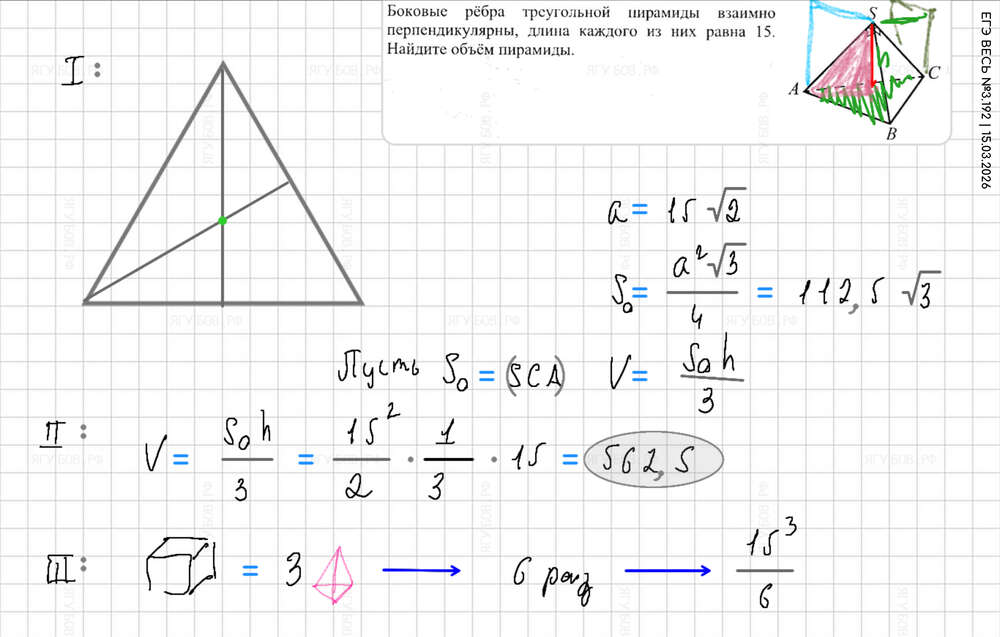 Боковые рёбра треугольной пирамиды взаимно
перпендикулярны, длина каждого из них равна 15.
Найдите объём пирамиды.
S
A
C
B
ЕГЭ ВЕСЬ №3.192 | 15.03.2026
I:
a = 15 √2
S₀ = a²√3 / 4 = 112,5 √3
Пусть S₀ = (SCA) V = S₀h / 3
II:
V = S₀h / 3 = 15² / 2 · 1 / 3 · 15 = 562,5
III:
= 3 → 6 раз → 15³ / 6
ЯГУБОВ.РФ